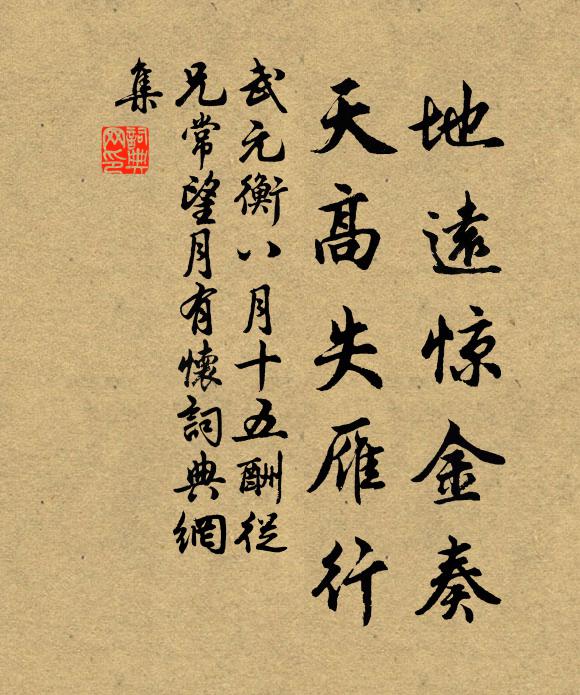 地遠惊金奏
天高失雁行
武元衡八月十五酬從
兄常望月有懷詞典網
集
詞典网印